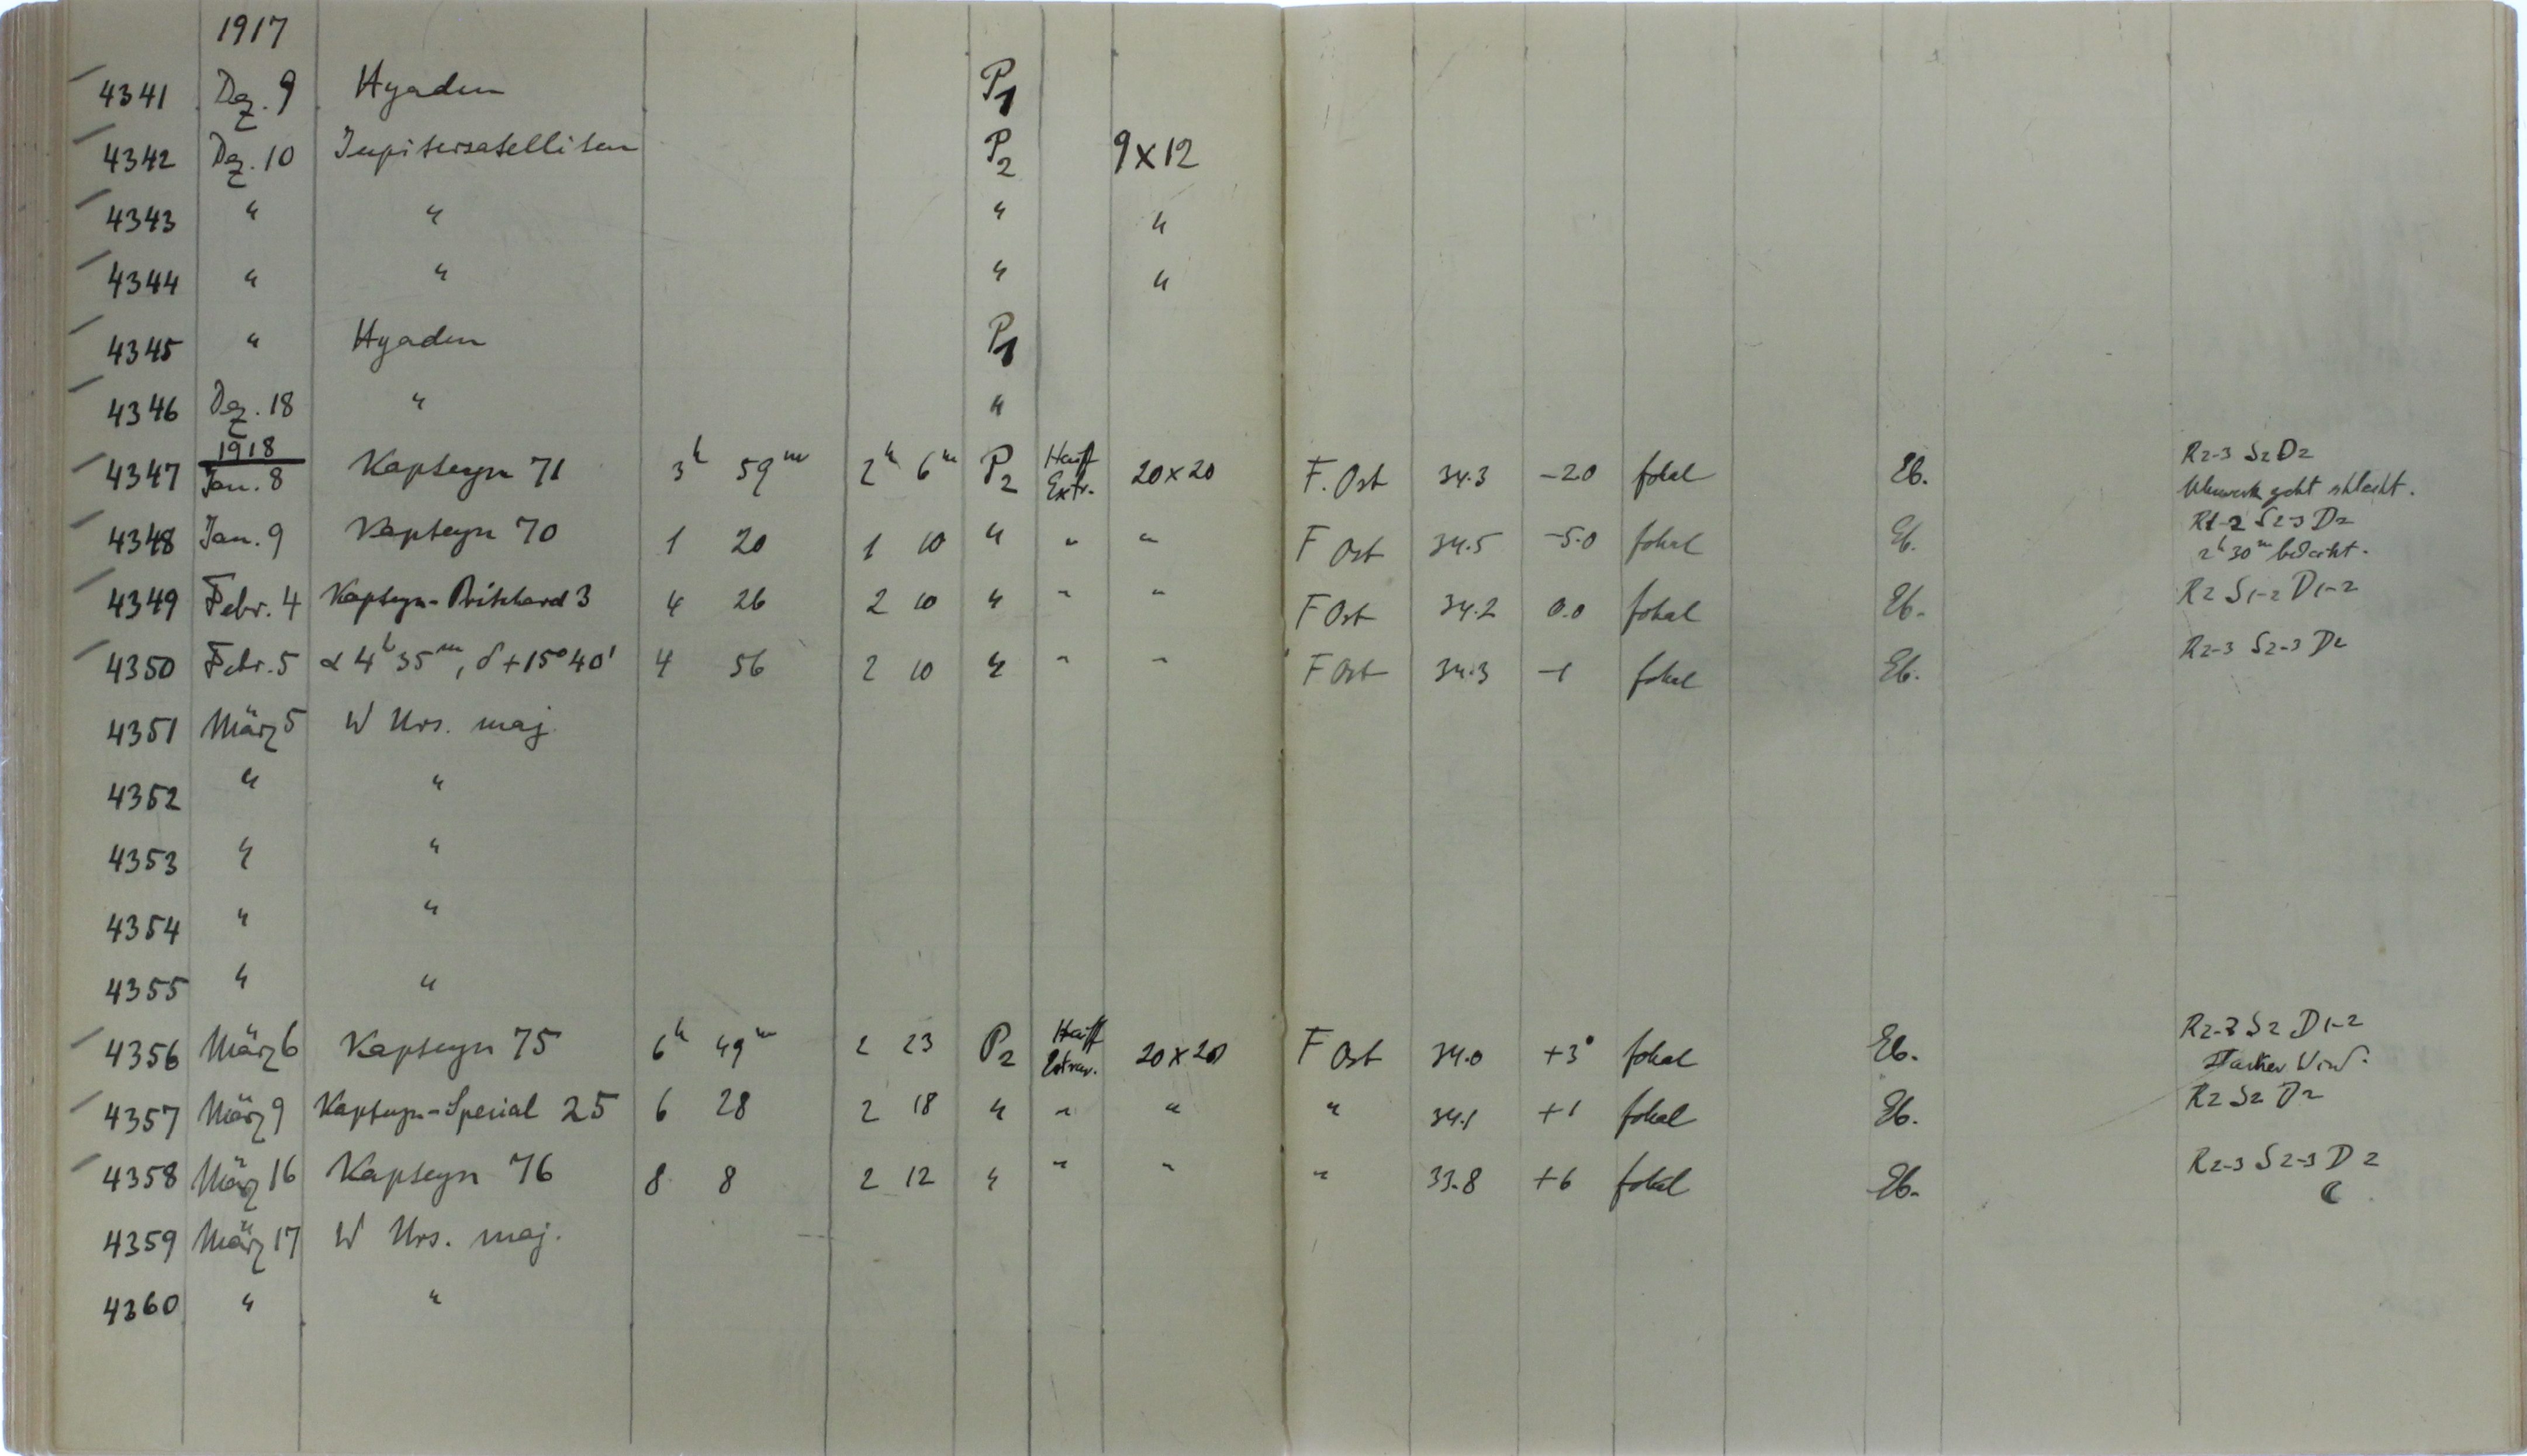 1917
4341 Dez. 9 Hyaden P1
4342 Dez. 10 Jupitersatelliten P2 9x12
4343 " " " "
4344 " " " "
4345 " Hyaden P1
4346 Dez. 18 " "
1918
4347 Jan. 8 Kapteyn 71 3h 59m 2h 6m P2 Hauff Extr. 20x20 F. Ost 34.3 -2.0 fokal Eb. R2-3 S2 D2
Uhrwerk geht schlecht.
4348 Jan. 9 Kapteyn 70 1 20 1 10 " " " F Ost 34.5 -5.0 fokal Eb. R1-2 S2-3 D2
2h 30m bedeckt.
4349 Febr. 4 Kapteyn-Pritchard 3 4 26 2 10 " " " F Ost 34.2 0.0 fokal Eb. R2 S1-2 D1-2
4350 Febr. 5 α 4h 35m, δ +15° 40' 4 56 2 10 " " " F Ost 34.3 -1 fokal Eb. R2-3 S2-3 D2
4351 März 5 W Urs. maj.
4352 " "
4353 " "
4354 " "
4355 " "
4356 März 6 Kapteyn 75 6h 49m 2 23 P2 Hauff Extrar. 20x20 F Ost 34.0 +3° fokal Eb. R2-3 S2 D1-2
starker Wind.
4357 März 9 Kapteyn-Special 25 6 28 2 18 " " " " 34.1 +1 fokal Eb. R2 S2 D2
4358 März 16 Kapteyn 76 8 8 2 12 " " " " 33.8 +6 fokal Eb. R2-3 S2-3 D2
☾
4359 März 17 W Urs. maj.
4360 " "